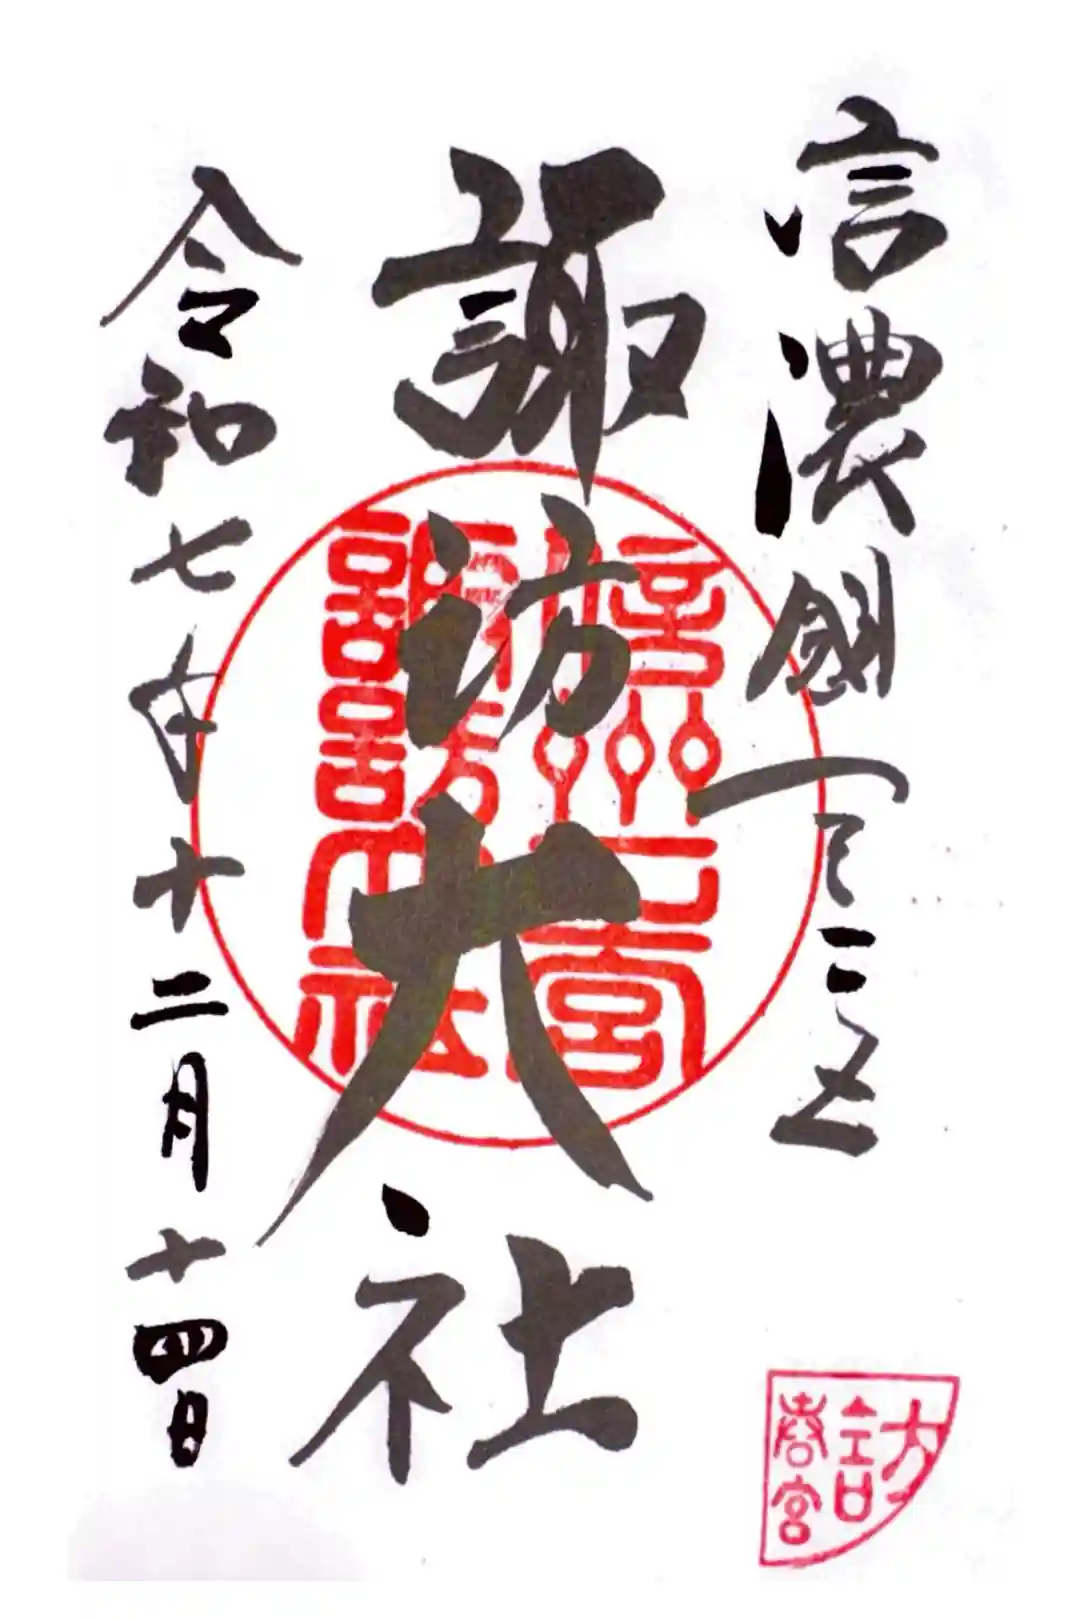 信濃國一之宮
諏訪大社
令和七年十二月十四日
信州一宮
諏訪大社
訪
春宮